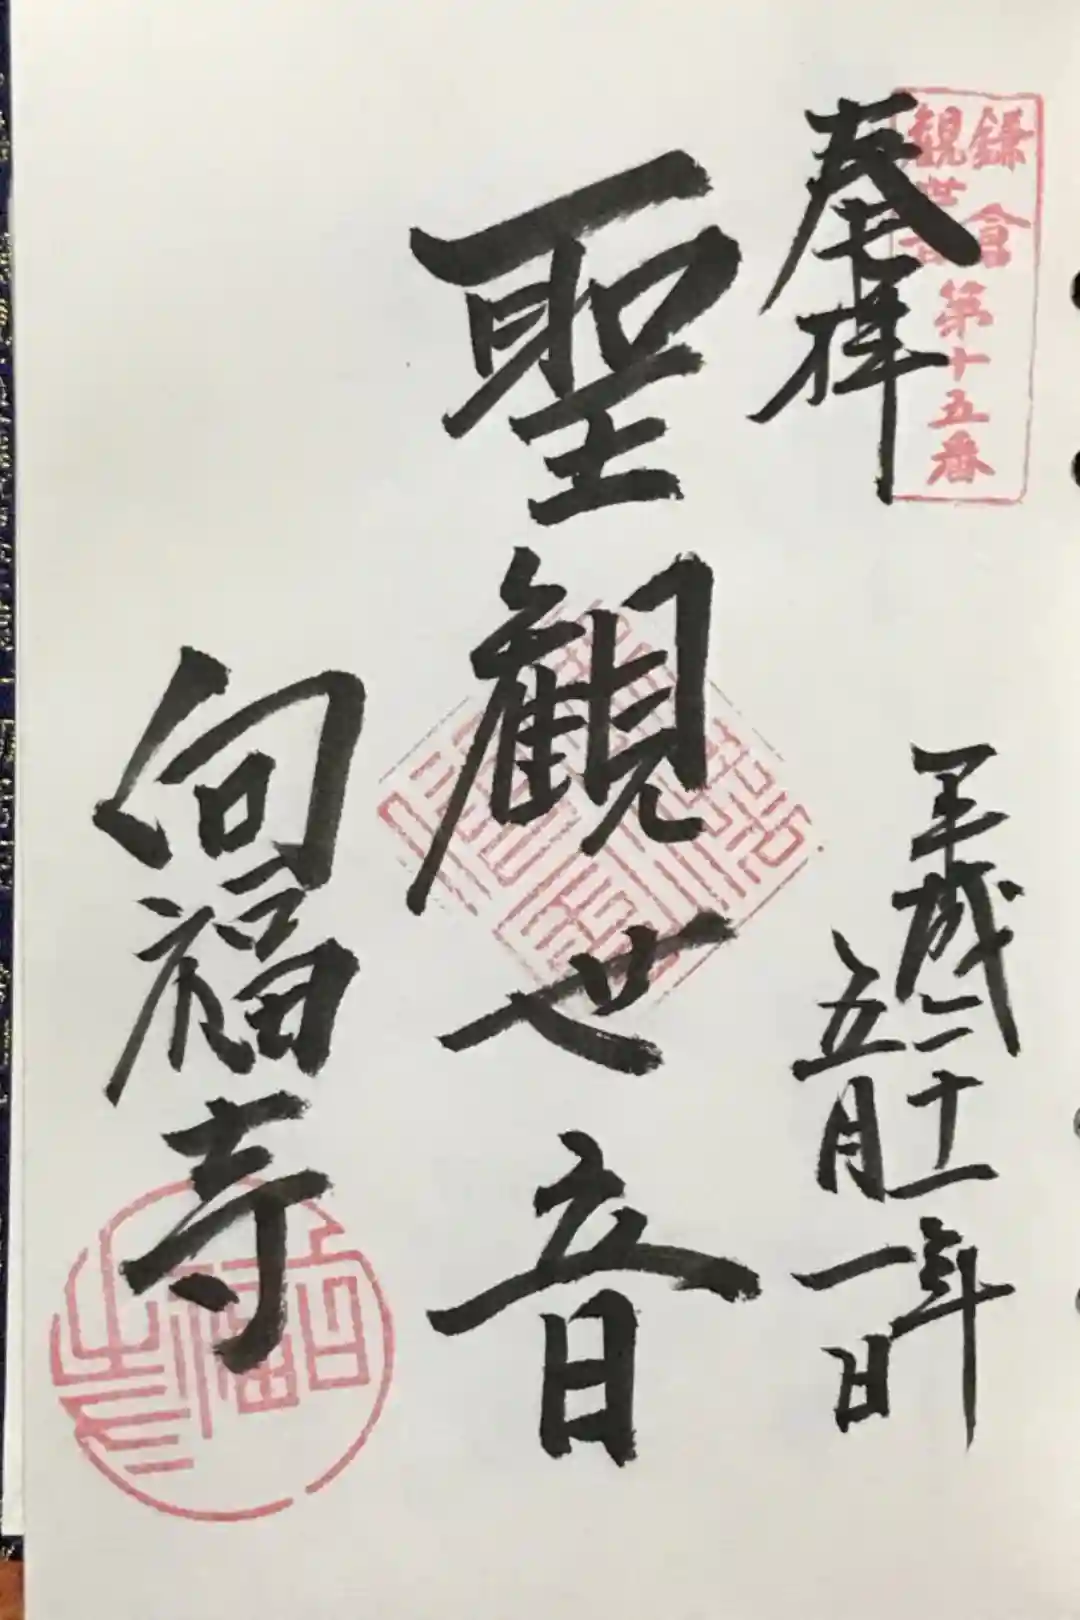 鎌倉
観世音
第十五番
奉拝
平成二十一年
五月一日
聖観世音
向福寺